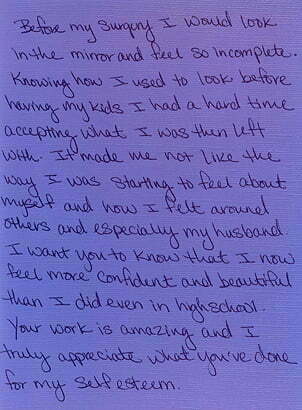 Before my surgery I would look
in the mirror and feel so incomplete.
Knowing how I used to look before
having my kids I had a hard time
accepting what I was then left
with. It made me not like the
way I was starting to feel about
myself and how I felt around
others and especially my husband.
I want you to know that I now
feel more confident and beautiful
than I did even in highschool.
Your work is amazing and I
truly appreciate what you've done
for my self esteem.